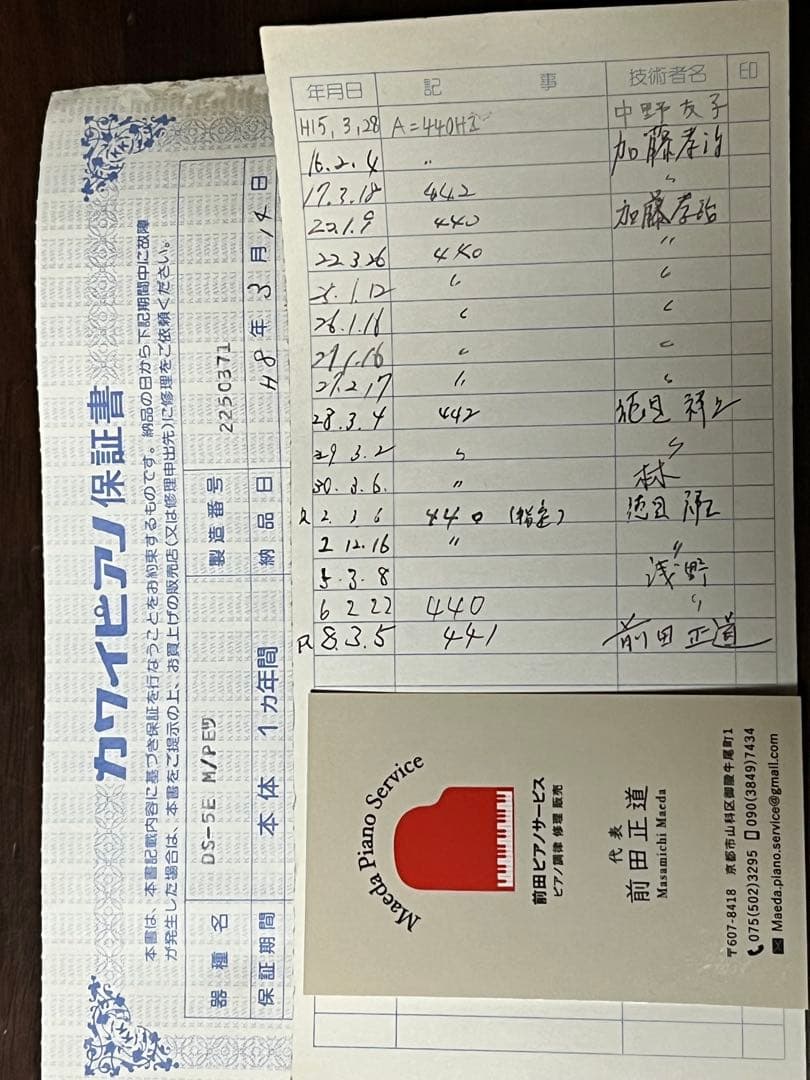 カワイピアノ保証書
本書は、本書記載内容に基づき保証を行なうことをお約束するものです。納品の日から下記期間中に故障
が発生した場合は、本書をご提示の上、お買上げの販売店(又は修理申出先)に修理をご依頼ください。
器種名 DS-5E M/PEツ 製造番号 2250371
保証期間 本体 1ヵ年間 納品日 H8年3月14日
年月日 記事 技術者名 印
H15,3,28 A=440Hz 中野友子
16.2.4 〃 加藤孝治
17.3.18 442 〃
22.1.9 440 加藤孝治
22 3 26 440 〃
25.1.12 〃 〃
26.1.16 〃 〃
27.1.16 〃 〃
27.2.17 〃 〃
28.3.4 442
29 3.2 〃 〃
30.3.6. 〃 林
R 2.3 6 440 (指定)
2 12.16 〃 〃
5.3.8 浅野
6 2 22 440 〃
R 8.3.5 441 前田正道
Maeda Piano Service
前田ピアノサービス
ピアノ調律 修理 販売
代表
前田正道
Masamichi Maeda
〒607-8418 京都市山科区御陵牛尾町1
075(502)3295 090(3849)7434
Maeda.piano.service@gmail.com